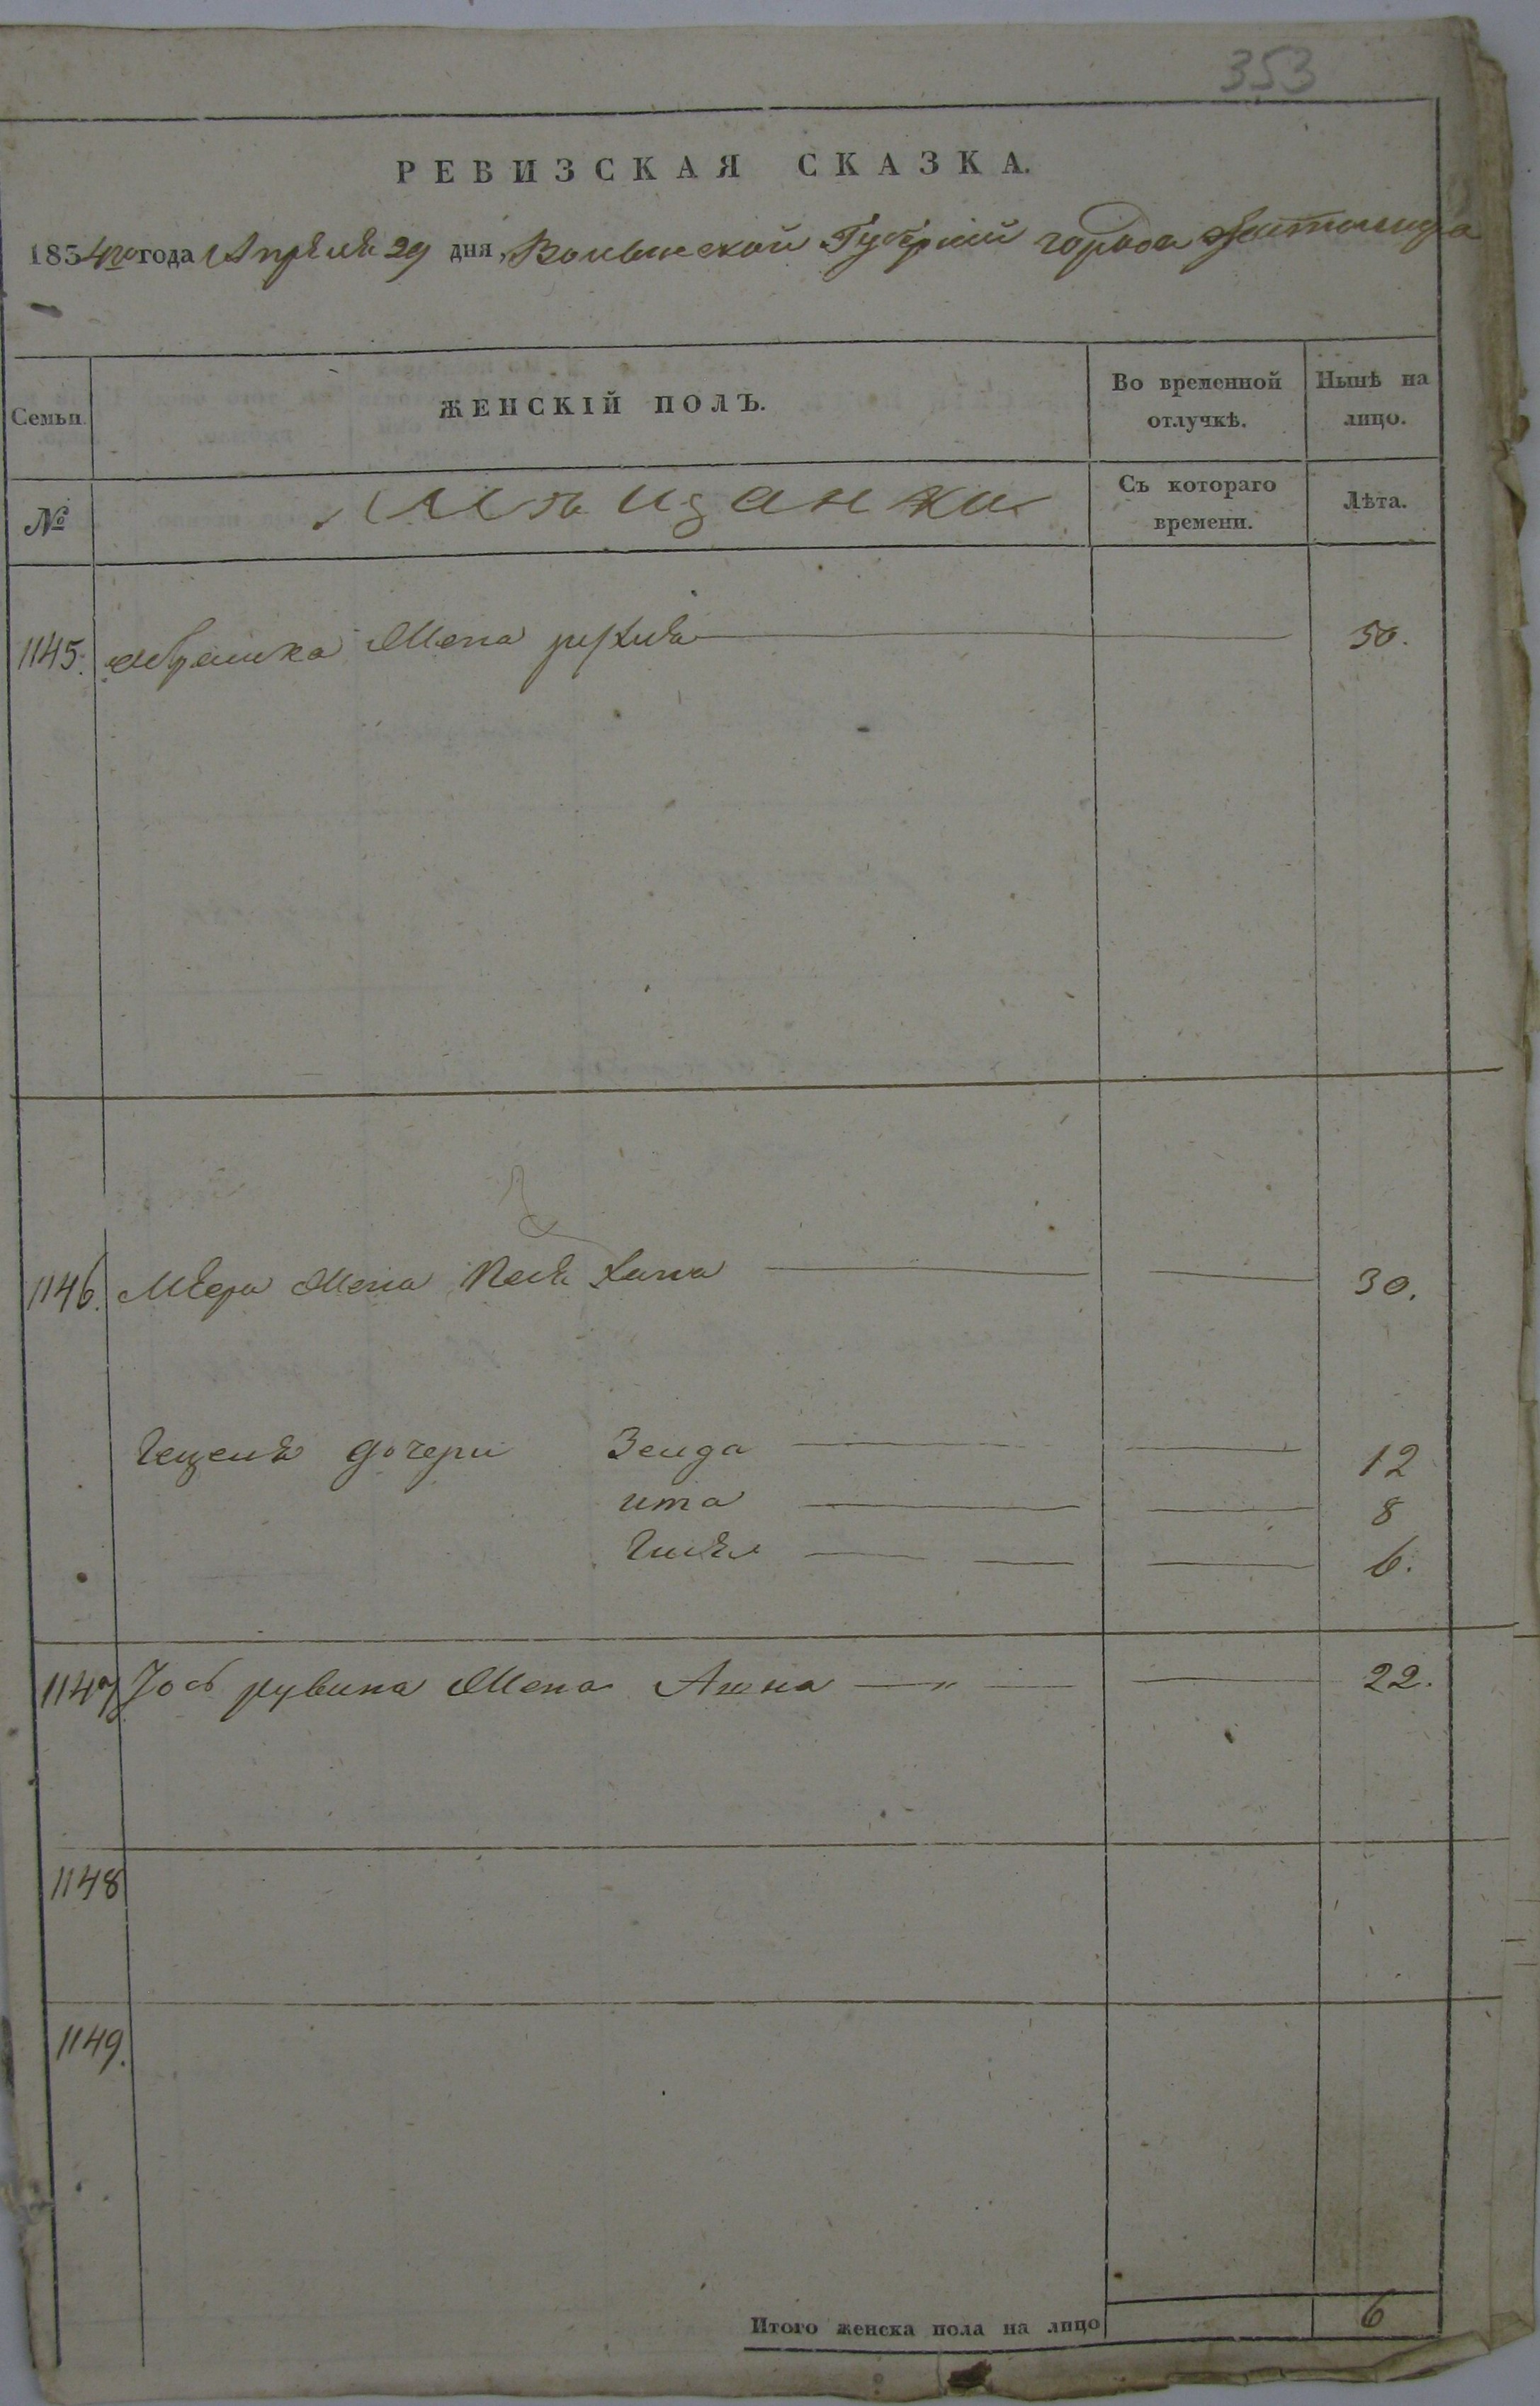 353
РЕВИЗСКАЯ СКАЗКА.
1854го года Апрѣля 29 дня, Волынской Губернии города Житомира
Семьи. ЖЕНСКІЙ ПОЛЪ. Во временной отлучкѣ. Нынѣ на лицо.
№ Мѣщанки Съ котораго времени. Лѣта.
1145. Абрамка Жена рухля 50.
1146. Мѣера Жена Песя Хана 30.
дочери Зенда 12
ита 8
6.
1147 Іось рувина Жена 22.
1148
1149.
Итого женска пола на лицо 6